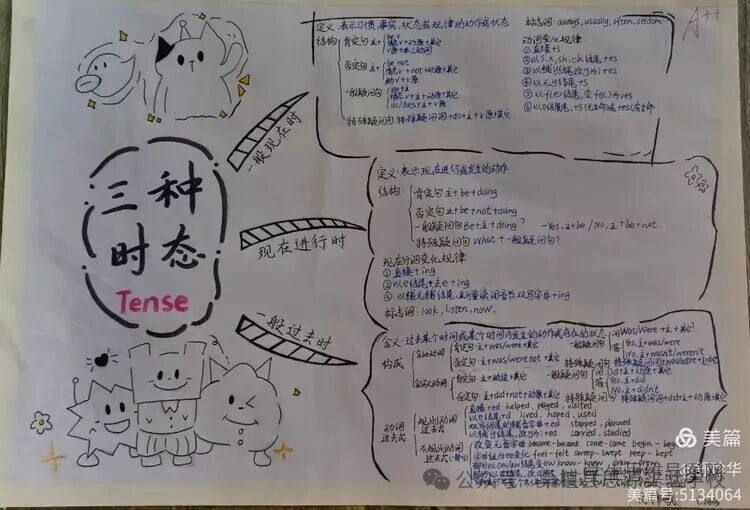 三种
时态
Tense
一般现在时
现在进行时
一般过去时
A++
定义:表示习惯、事实、状态或规律的动作或状态
结构
肯定句 主+
be.v
情态v+动原+其它
v原+单三动词
否定句 主+
be.not
情态v+not+动原+其它
助v+v原
一般疑问句
Be+主
情态v+主+动原+其它
do/does+主+v原
特殊疑问句 特殊疑问词+do+主+v原+其它
标志词: aways, usually, often, seldom
动词变化规律
①直接+s
②以s,x,sh,ch结尾,+es
③以辅y结尾改y为i+es
④以元y结尾,+s
⑤以f(e)结尾,变f(e)为ves
⑥以o结尾,+s(无生命)或+es(有生命)
定义:表示现在进行或发生的动作
结构:
肯定句 主+be+doing
否定句 主+be+not+doing
一般疑问句 Be+主+doing? -Yes,主+be/No,主+be+not
特殊疑问句 What+一般疑问句?
现在分词变化规律
①直接+ing
②以e结尾+去e+ing
③以辅元辅结尾,且为重读闭音节双写字母+ing
标志词: look, listen, now,
含义:过去某个时间或某个时间内发生的动作或存在的状态
构成
含be动词
肯定句:主+was/were+其它
否定句:主+was/were not+其它
一般疑问句
问Was/Were+主+其它?
答 Yes,主+was/were
No,主+wasn't/weren't
特殊疑问句
含实义动词
否定句:主+did+not+动原+其它
一般疑问句
问Did+主+动原+其它
Yes,主+did
No,主+didn't
特殊疑问句 特殊疑问词+did+主+动原+其它
动词过去式
规则动词过去式
直接+ed helped, played, visited
以e结尾+d lived, hoped, used
stopped, planned
以辅y结尾,改y为i+ed carried, studied
不规则动词过去式
改变元音字母 become-became come-came begin-
feel-felt sweep-swept keep-kept
know-knew draw-drew
美篇
美篇号:5134064